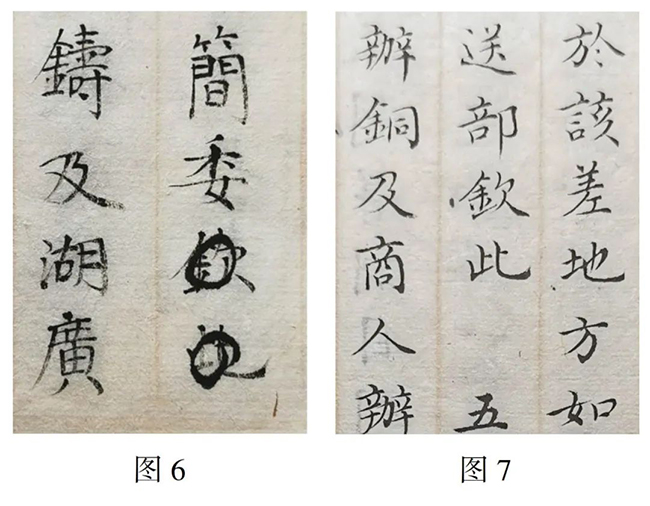 簡委欽
鑄及湖廣
图 6
於該差地方如
送部欽此 五
辦銅及商人辦
图 7